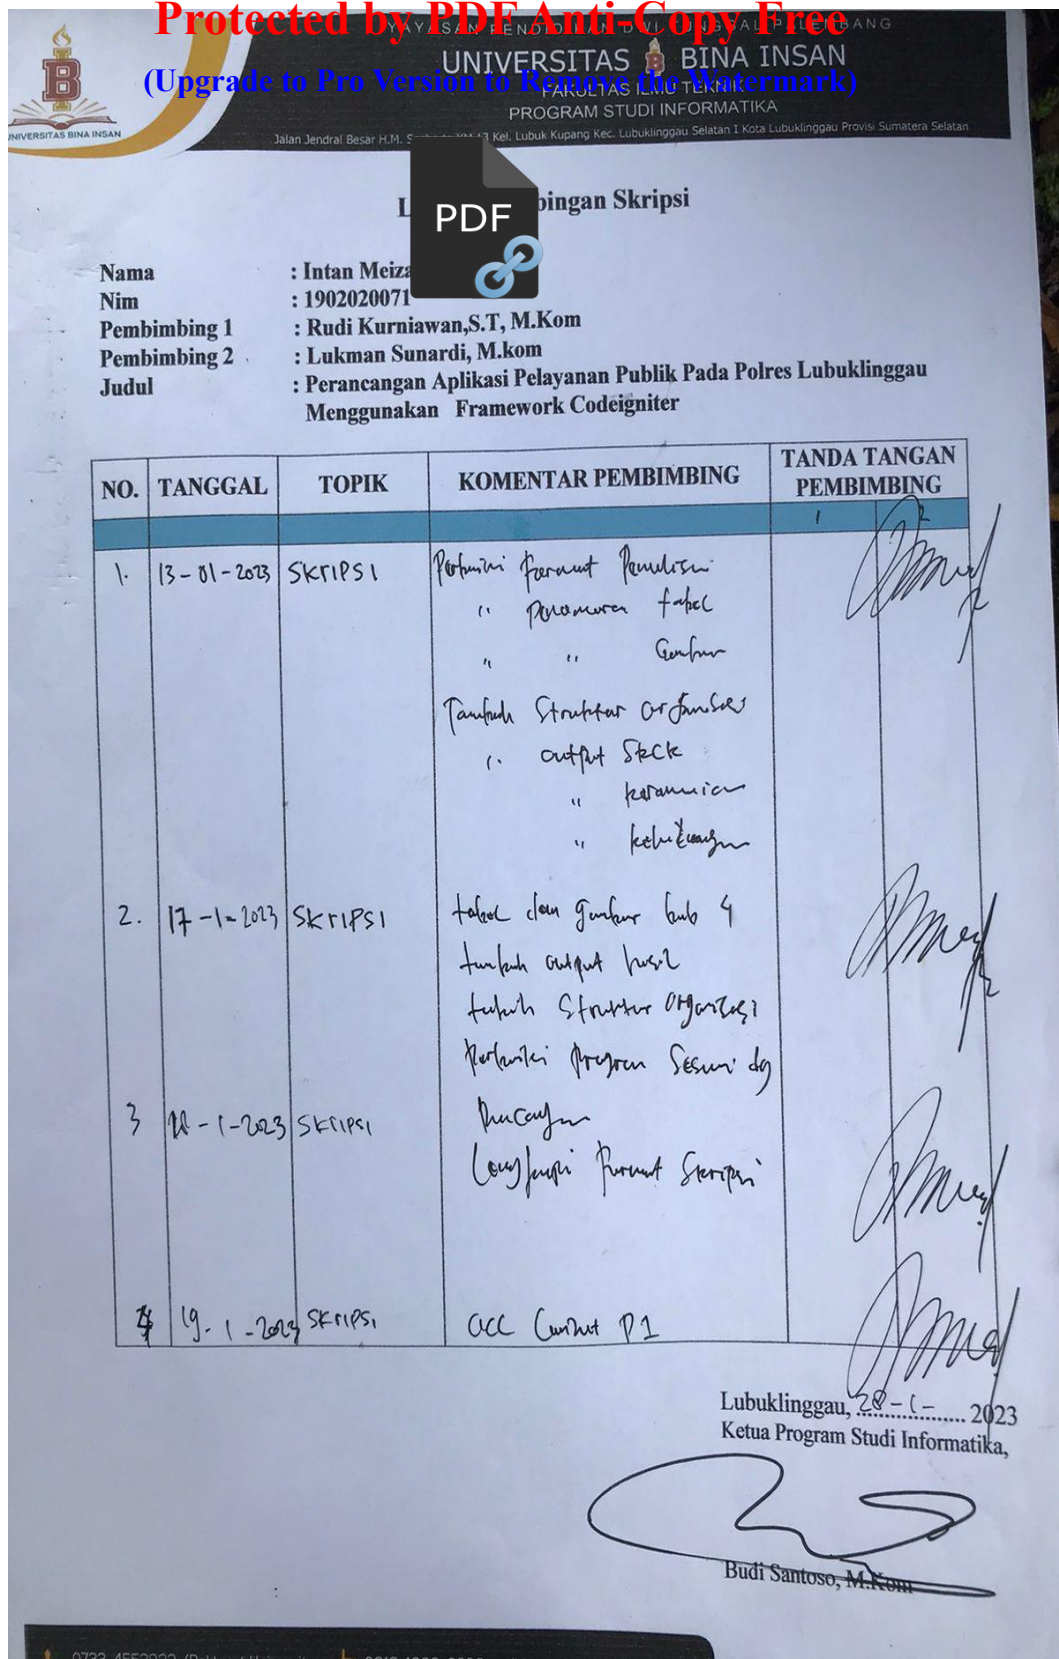 Protected by PDF Anti-Copy Free
(Upgrade to Pro Version to Remove the Watermark)
UNIVERSITAS BINA INSAN
FAKULTAS ILMU TEKNIK
PROGRAM STUDI INFORMATIKA
Jalan Jendral Besar H.M. KM 13 Kel. Lubuk Kupang Kec. Lubuklinggau Selatan I Kota Lubuklinggau Provisi Sumatera Selatan
UNIVERSITAS BINA INSAN
PDF
bingan Skripsi
Nama : Intan Meiza
Nim : 1902020071
Pembimbing 1 : Rudi Kurniawan,S.T, M.Kom
Pembimbing 2 : Lukman Sunardi, M.kom
Judul : Perancangan Aplikasi Pelayanan Publik Pada Polres Lubuklinggau
Menggunakan Framework Codeigniter
NO. TANGGAL TOPIK KOMENTAR PEMBIMBING TANDA TANGAN PEMBIMBING
1 2
1. 13-01-2023 SKRIPSI Format Penulisan
" tabel
" " Gambar
Tambah Struktur Organisasi
" output SKCK
"
" kehilangan
2. 17-1-2023 SKRIPSI tabel dan gambar bab 4
tambah output hasil
Struktur Organisasi
Perbaiki program Sesuai dg
3 18-1-2023 SKRIPSI
Lengkapi Format Skripsi
4 19-1-2023 SKRIPSI acc Lanjut P1
Lubuklinggau, 28-1- 2023
Ketua Program Studi Informatika,
Budi Santoso, M.Kom